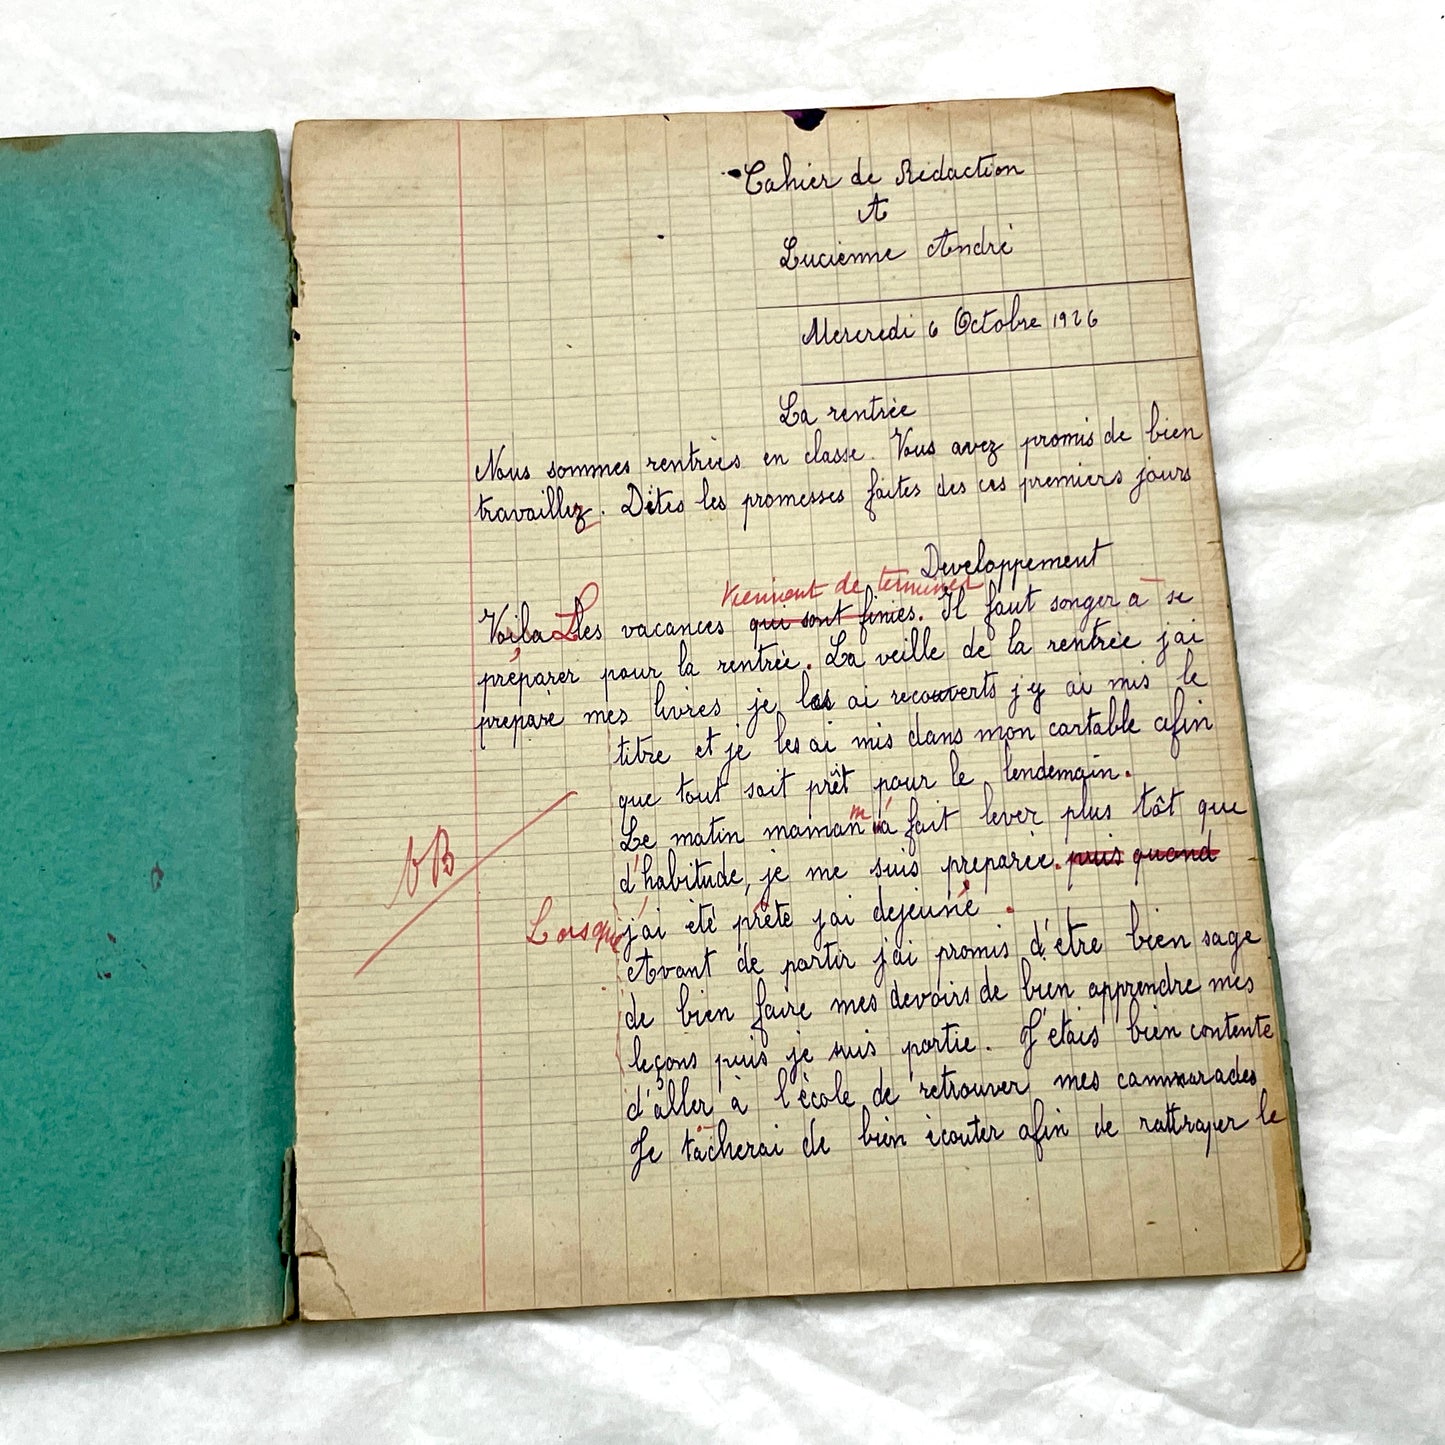 Cahier de Rédaction
A
Lucienne André
Mercredi 6 Octobre 1926
La rentrée
Nous sommes rentrées en classe. Vous avez promis de bien
travaillez. Dites les promesses faites des ces premiers jours
Developpement
Viennent de terminer
Voila Les vacances qui sont finies. Il faut songer à se
préparer pour la rentrée. La veille de la rentrée j'ai
preparé mes livres je les ai recouverts j'y ai mis le
titre et je les ai mis dans mon cartable afin
que tout soit prêt pour le lendemain.
Le matin maman m'a fait lever plus tôt que
d'habitude, je me suis preparée. puis quand
Lorsque j'ai été prête j'ai dejeuné.
Avant de partir j'ai promis d'être bien sage
de bien faire mes devoirs de bien apprendre mes
leçons puis je suis partie. J'étais bien contente
d'aller à l'école de retrouver mes cammarades
Je tâcherai de bien écouter afin de rattraper le